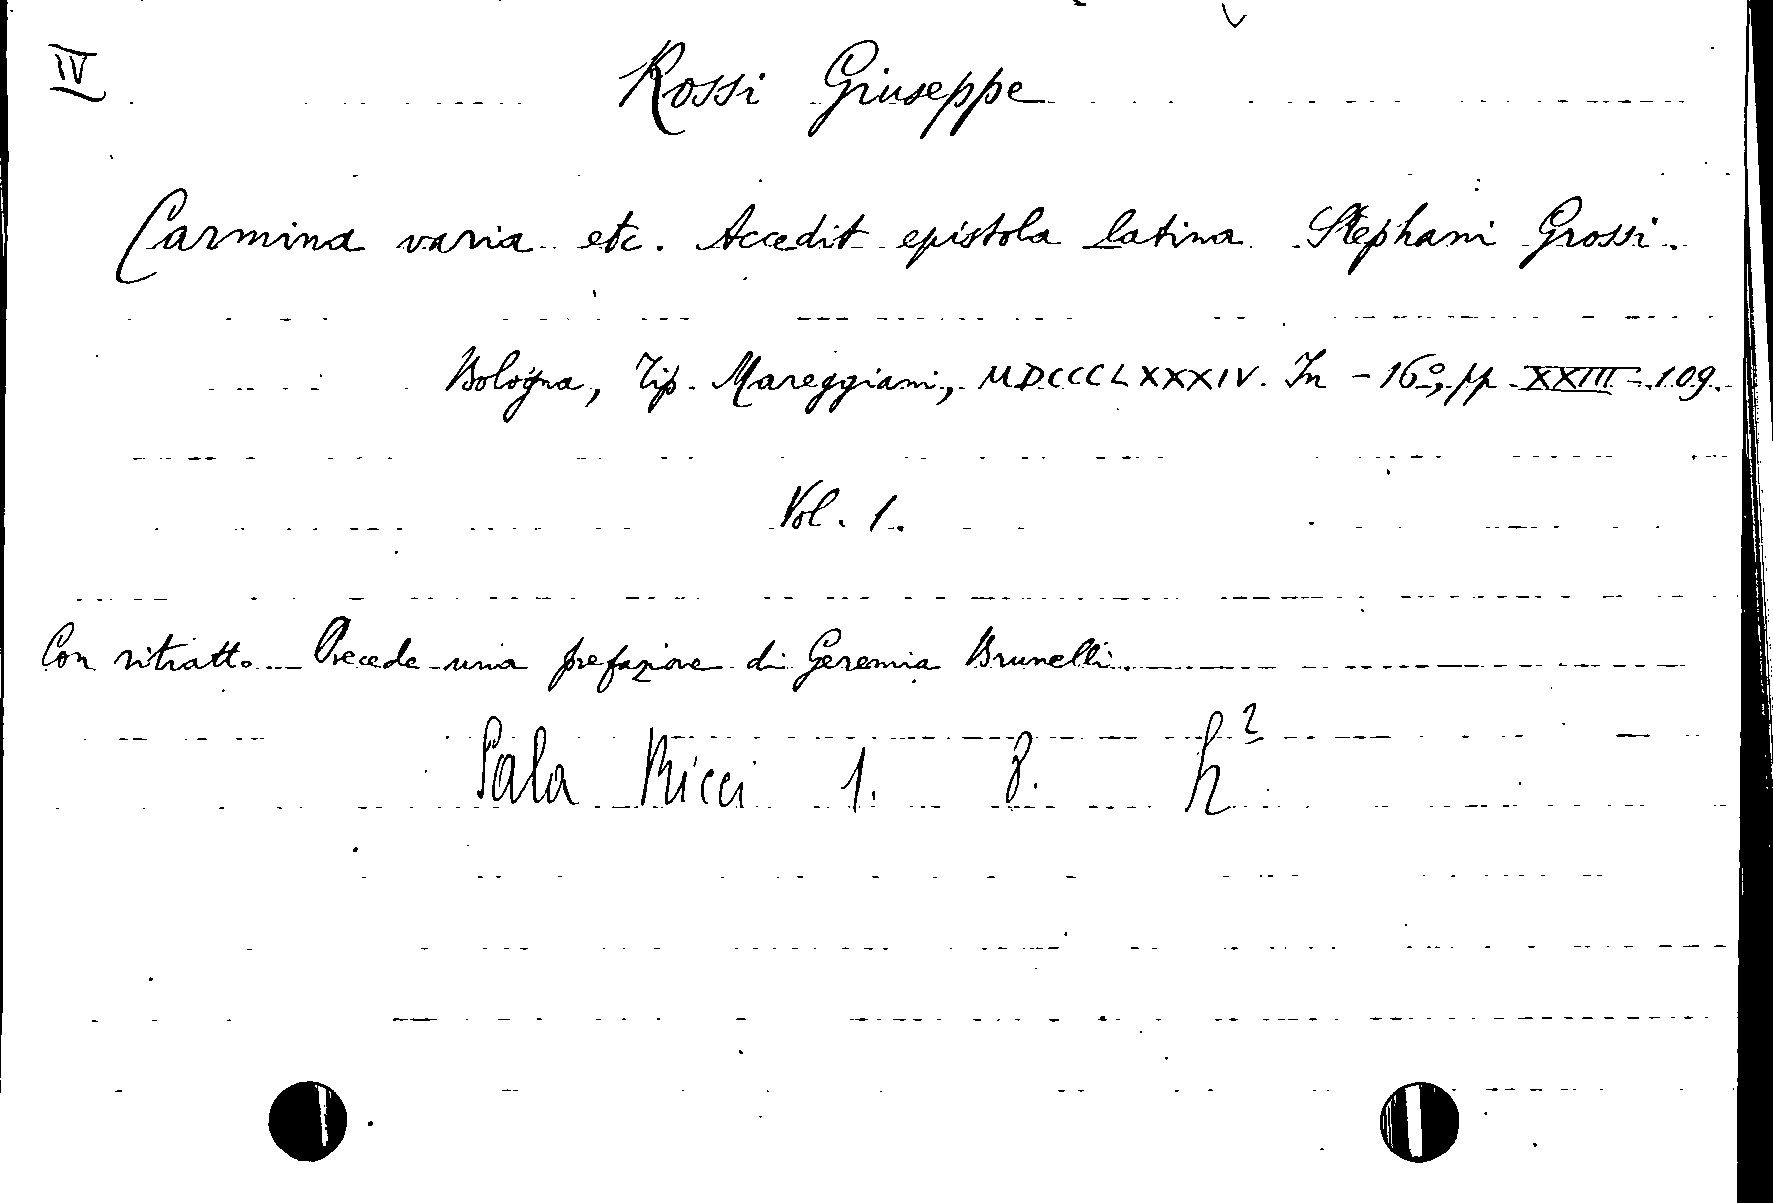 IV
Rossi Giuseppe
Carmina varia etc. Accedit epistola latina Stephani Grossi.
Bologna, Tip. Mareggiani, MDCCCLXXXIV. In - 16º, pp XXIII - 109.
Vol. 1.
Con ritratto. Precede una prefazione di Geremia Brunelli.
Sala Ricci 1. 8. h²